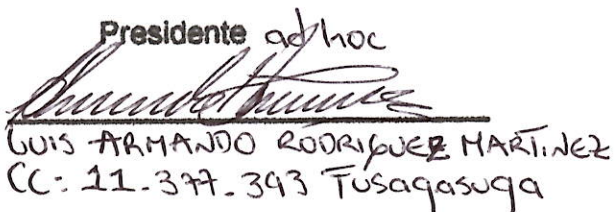 Presidente ad hoc
LUIS ARMANDO RODRIGUEZ MARTINEZ
CC: 11.377.393 Fusagasuga